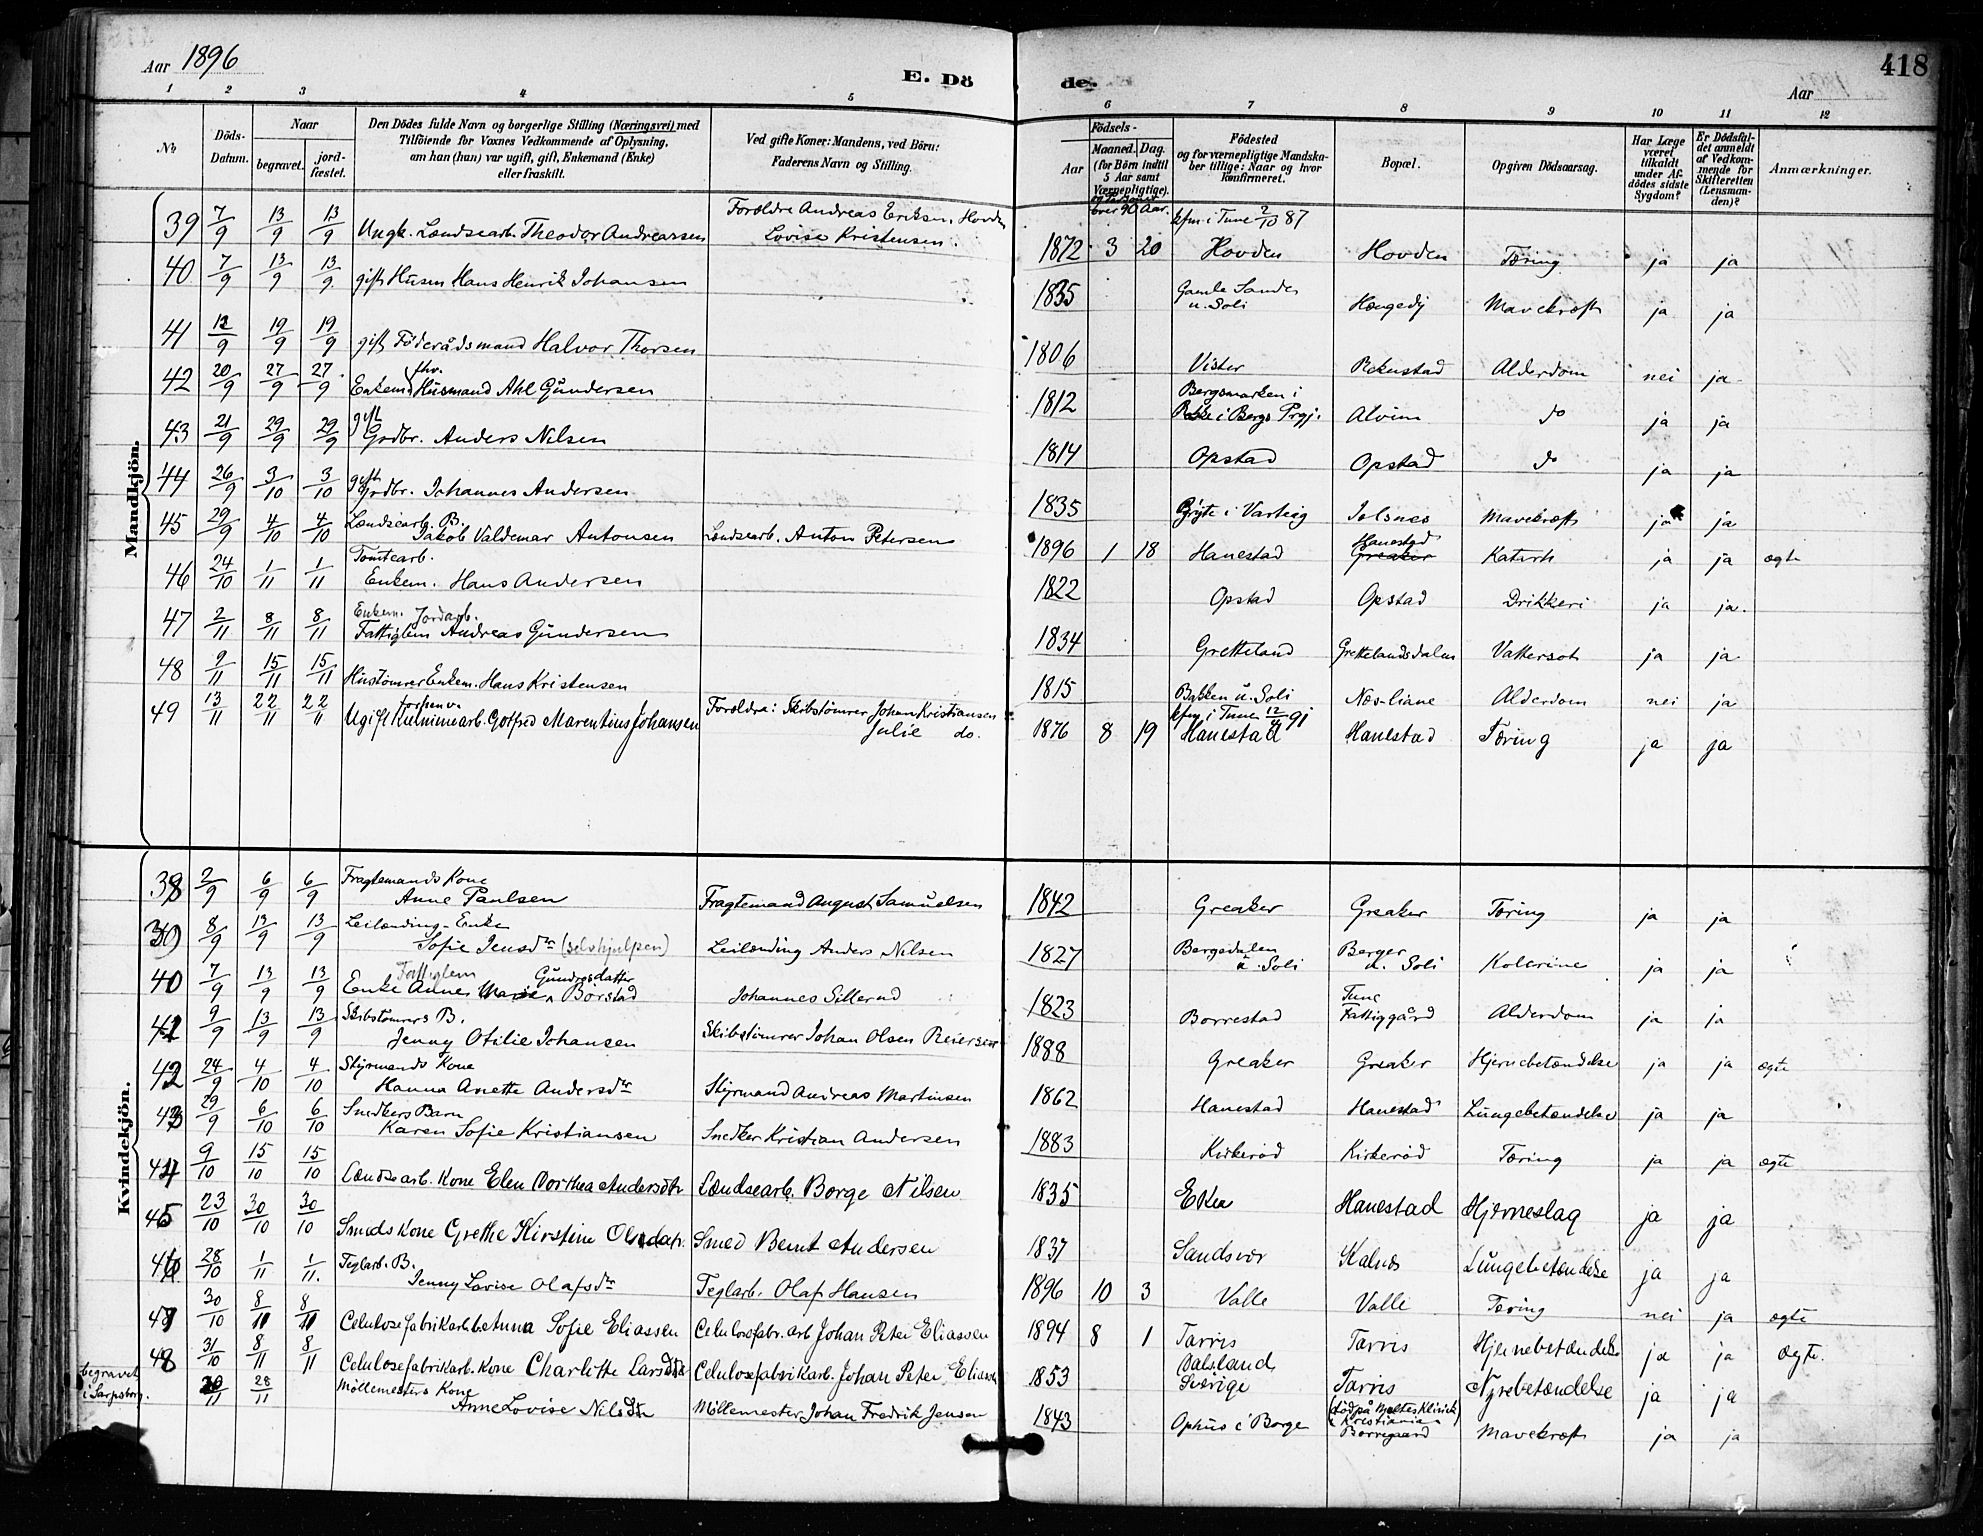 Aar 1896
E. Döde.
Aar
418
1 2 3 4 5 6 7 8 9 10 11 12
No
Döds-Datum.
Naar
begravet.
jord-fæstet.
Den Dödes fulde Navn og borgerlige Stilling (Næringsvei) med
Tilföiende for Voxnes Vedkommende af Oplysning,
om han (hun) var ugift, gift, Enkemand (Enke)
eller fraskilt.
Ved gifte Koner: Mandens, ved Börn:
Faderens Navn og Stilling.
Födsels-
Aar
Maaned. Dag.
(for Börn indtil
5 Aar samt
Værnepligtige).
over 90 Aar.
Födested
og for værnepligtige Mandska-
ber tillige: Naar og hvor
konfirmeret.
Bopæl.
Opgiven Dödsaarsag.
Har Læge
været
tilkaldt
under Af-
dödes sidste
Sygdom?
Er Dödsfal-
det anmeldt
af Vedkom-
mende for
Skifteretten
(Lensman-
den)?
Anmærkninger.
Mandkjön.
39 7/9 13/9 13/9 Ungk. Lændsearb. Theodor Andreassen Forældre Andreas Eriksen, Hovden
Lovise Kristensen. 1872 3 20 kfm. i Tune 2/10 87
Hovden Hovden Tæring ja ja
40 7/9 13/9 13/9 gift Husm Hans Henrik Johansen 1835 Gamle Sandes
u. Soli Hængedy Mavekræft ja ja
41 12/9 19/9 19/9 gift Föderådsmand Halvor Thorsen 1806 Vister Rekustad Alderdom nei ja
42 20/9 27/9 27/9 Enkem. fhv. Husmand Ahl Gundersen 1812 Bergsmarken i
Rokke i Bergs Prgj. Alvim do ja ja
43 21/9 29/9 29/9 gift
Grdbr. Anders Nilsen 1814 Opstad Opstad do ja ja
44 26/9 3/10 3/10 gift
Grdbr. Johannes Andersen 1835 Gryte i Varteig Solsnes Mavekræft ja ja
45 29/9 4/10 4/10 Lændsearb. B.
Jakob Valdemar Antonsen Lændsearb. Anton Petersen 1896 1 18 Hanestad Hanestad
Greaker Katarrh ja ja ægte
46 24/10 1/11 1/11 Tomtearb.
Enkem. Hans Andersen 1822 Opstad Opstad Drikkeri ja ja.
47 2/11 8/11 8/11 Enkem. Jordarb.
Fattiglem Andreas Gundersen 1834 Gretteland Grettelandsdalen Vattersot ja ja
48 9/11 15/11 15/11 Hustömrer Enkem. Hans Kristensen 1815 Bakken u. Soli Næs-liane Alderdom nei ja
49 13/11 22/11 22/11 Ugift Kulminearb. Gotfred Marentius Johansen Forældre: Skibstömrer Johan Kristiansen
Julie do. 1876 8 19 kfm. i Tune 12/4 91
Hanestad Hanestad Tæring ja ja
Kvindekjön.
38 2/9 6/9 6/9 Fragtemands Kone
Anne Paulsen Fragtemand August Samuelsen 1842 Greaker Greaker Tæring ja ja
39 8/9 13/9 13/9 Leilænding-Enke
Sofie Jensdtr (selvhjulpen) Leilænding Anders Nilsen 1827 Bergedalen
u. Soli Berger
u. Soli Kolerine ja ja
40 7/9 13/9 13/9 Fattiglem Gundersdatter
Enke Anne Marie Börstad Johannes Sillerud 1823 Borrestad Tune
Fattiggård Alderdom ja ja
41 9/9 13/9 13/9 Skibstömrers B.
Jenny Otilie Johansen Skibstömrer Johan Olsen Reiersen 1888 Greaker Greaker Hjernebetændelse ja ja ægte
42 24/9 4/10 4/10 Styrmands Kone
Hanna Anette Andersdtr Styrmand Andreas Martinsen 1862 Hanestad Hanestad Lungebetændelse ja ja
43 29/9 6/10 6/10 Snedkers Barn
Karen Sofie Kristiansen Snedker Kristian Andersen 1883 Kirkeröd Kirkeröd Tæring ja ja ægte
44 9/10 15/10 15/10 Lændsearb. Kone Elen Dorthea Andersdtr Lændsearb. Borge Nilsen 1835 Eken Hanestad Hjerneslag ja ja
45 23/10 30/10 30/10 Smeds Kone Grethe Kirstine Olsdatr. Smed Bernt Andersen 1837 Sandsvær Kalnes Lungebetændelse ja ja
46 28/10 1/11 1/11. Teglarb. B.
Jenny Lovise Olafsdtr Teglarb. Olaf Hansen 1896 10 3 Valle Valle Tæring nei ja ægte
47 30/10 8/11 8/11 Celulosefabrikarb. b. Anna Sofie Eliassen Celulosefabr.arb Johan Peter Eliassen 1894 8 1 Tarris Tarris Hjernebetændelse ja ja Ægte.
48 31/10 8/11 8/11 Celulosefabrikarb. Kone Charlotte Larsdtr Celulosefabrikarb. Johan Peter Eliassen 1853 Dalsland
Sverige Tarris Nyrebetændelse ja ja
begravet
i Sarpsborg. 20/11 28/11 Möllemesters Kone
Anne Lovise Nilsdtr Möllemester Johan Fredrik Jensen 1843 Ophus i Borge (död på Maltes Klinik
i Kristiania)
Borregaard Mavekræft ja ja